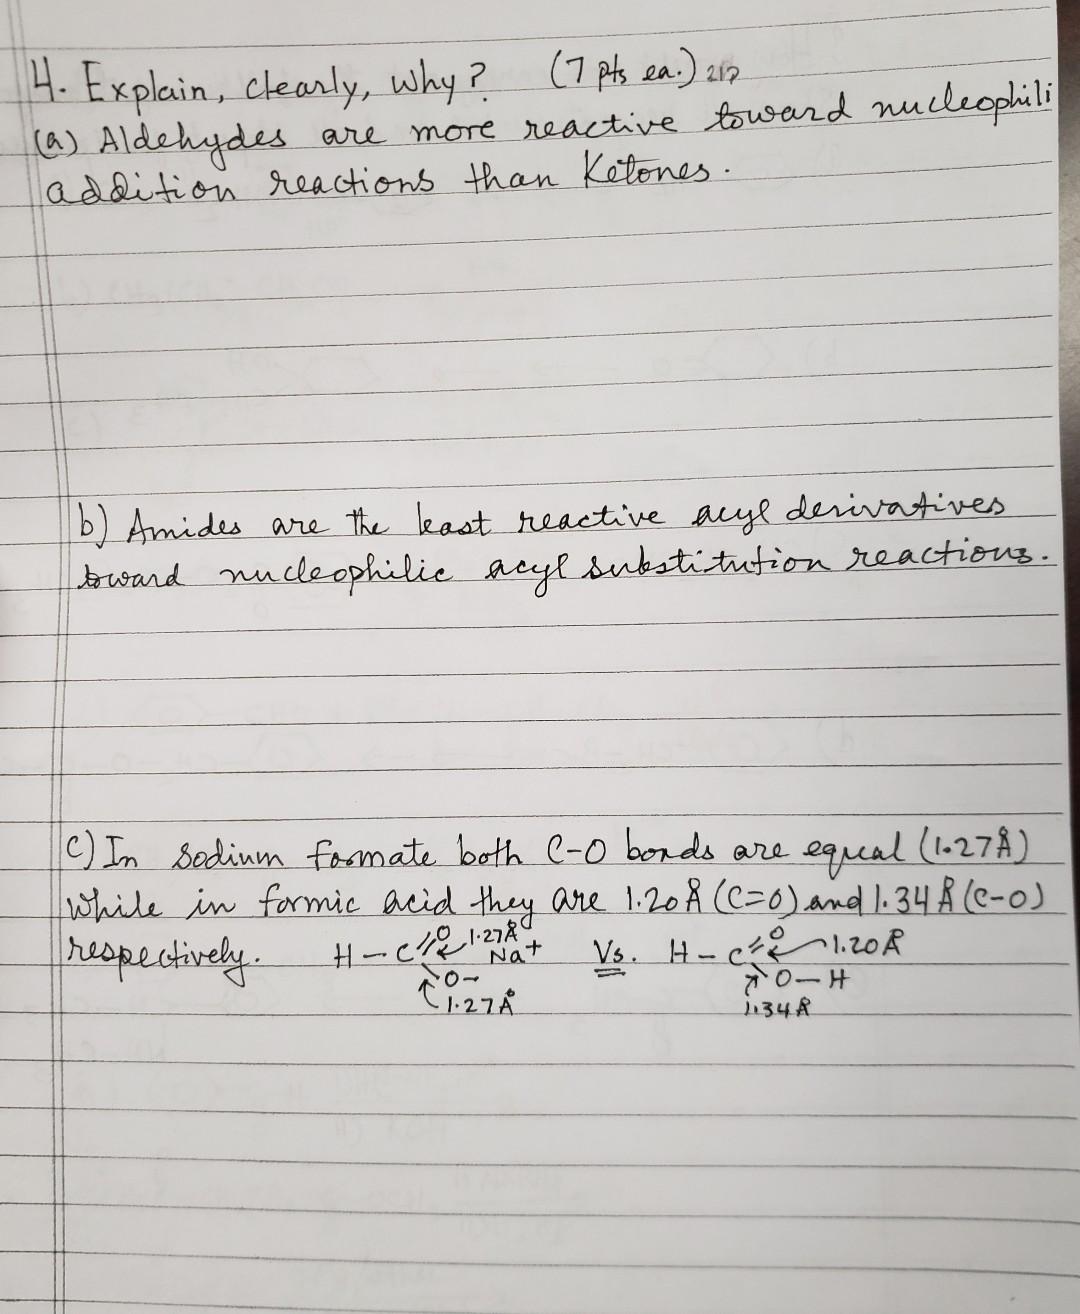 4. Explain, clearly, why? (7 pts ea.) 21P
(a) Aldehydes are more reactive toward nucleophili
addition reactions than Ketones.
b) Amides are the least reactive acyl derivatives
toward nucleophilic acyl substitution reactions.
c) In Sodium formate both C-O bonds are equal (1.27Å)
while in formic acid they are 1.20Å (C=O) and 1.34Å (C-O)
respectively. H-C=O 1.27Å Na+ Vs. H-C=O 1.20Å
O- O-H
1.27Å 1.34Å